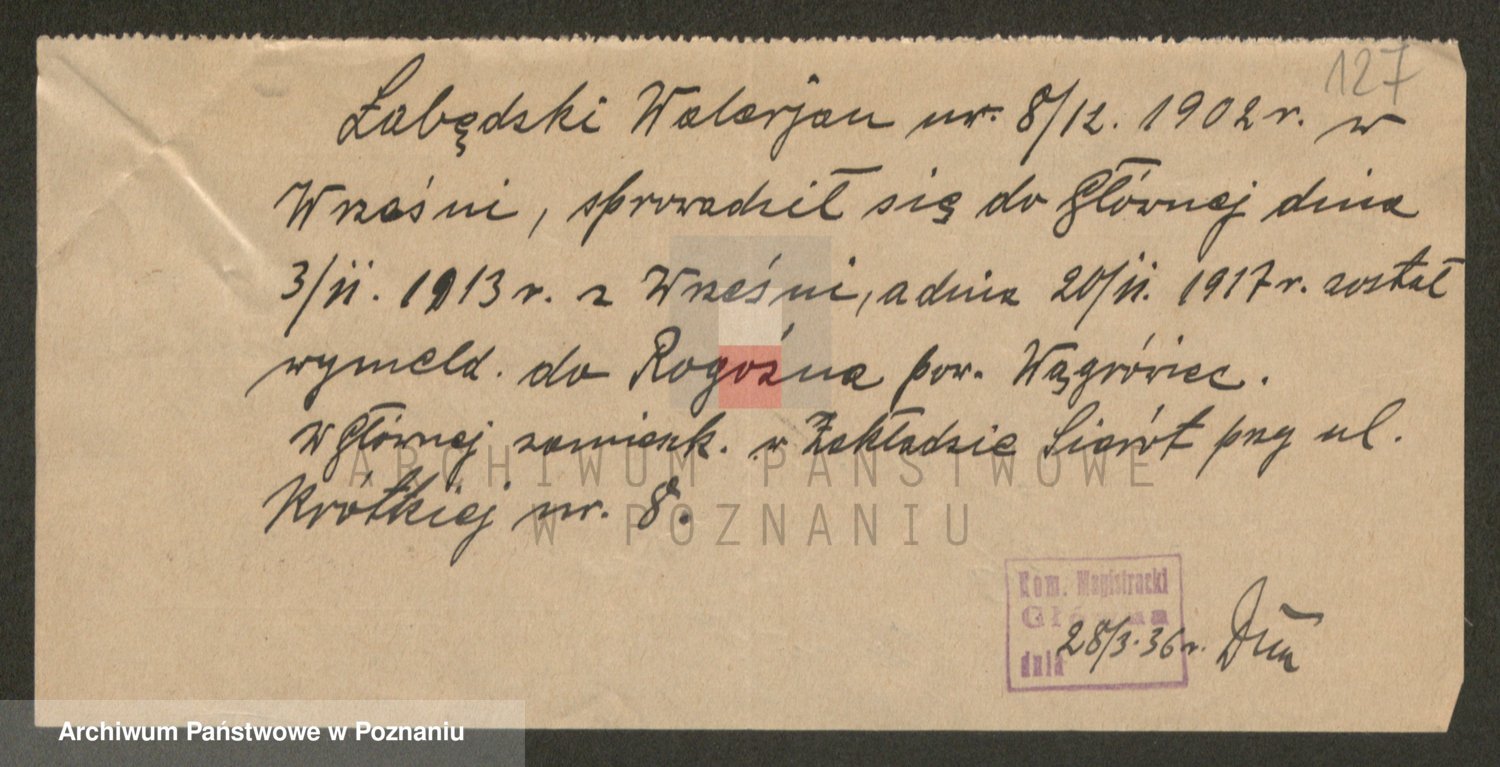 127
Łabędzki Walerjan ur. 8/12. 1902 r. w
Wrześni, sprowadził się do Głównej dnia
3/11. 1913 r. z Wrześni, a dnia 20/11. 1917 r. został
wymeld. do Rogoźna pow. Wągrówiec.
W Głównej zamieszk. w Zakładzie Sierót przy ul.
Krótkiej nr. 8.
ARCHIWUM PAŃSTWOWE
W POZNANIU
Kom. Magistracki
Główna
dnia 28/3.36 r.
Archiwum Państwowe w Poznaniu